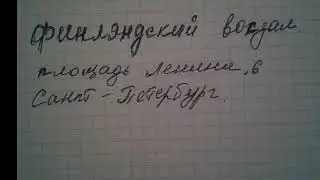 Финляндский вокзал.
площадь Ленина, 6
Санкт-Петербург.